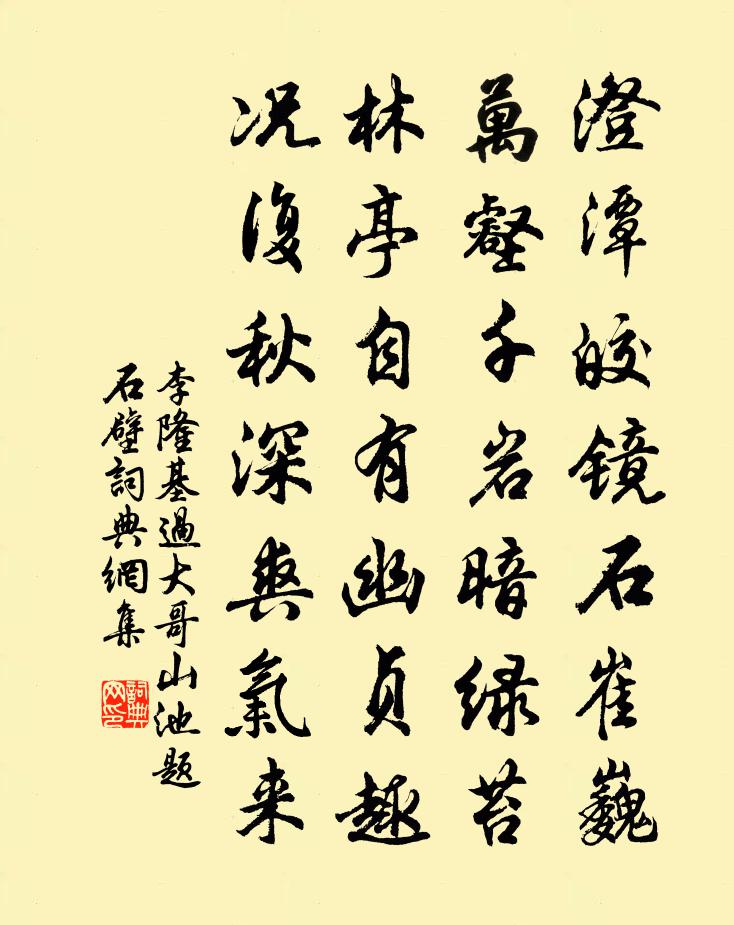 澄潭皎镜石崔巍
萬壑千岩暗绿苔
林亭自有幽貞趣
况復秋深爽氣来
李隆基過大哥山池題
石壁詞典網集
詞典
网印